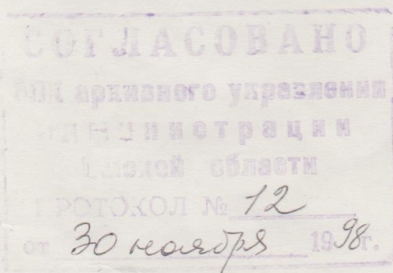 СОГЛАСОВАНО
ЭПК архивного управления
администрации
области
ПРОТОКОЛ № 12
от 30 ноября 1998г.